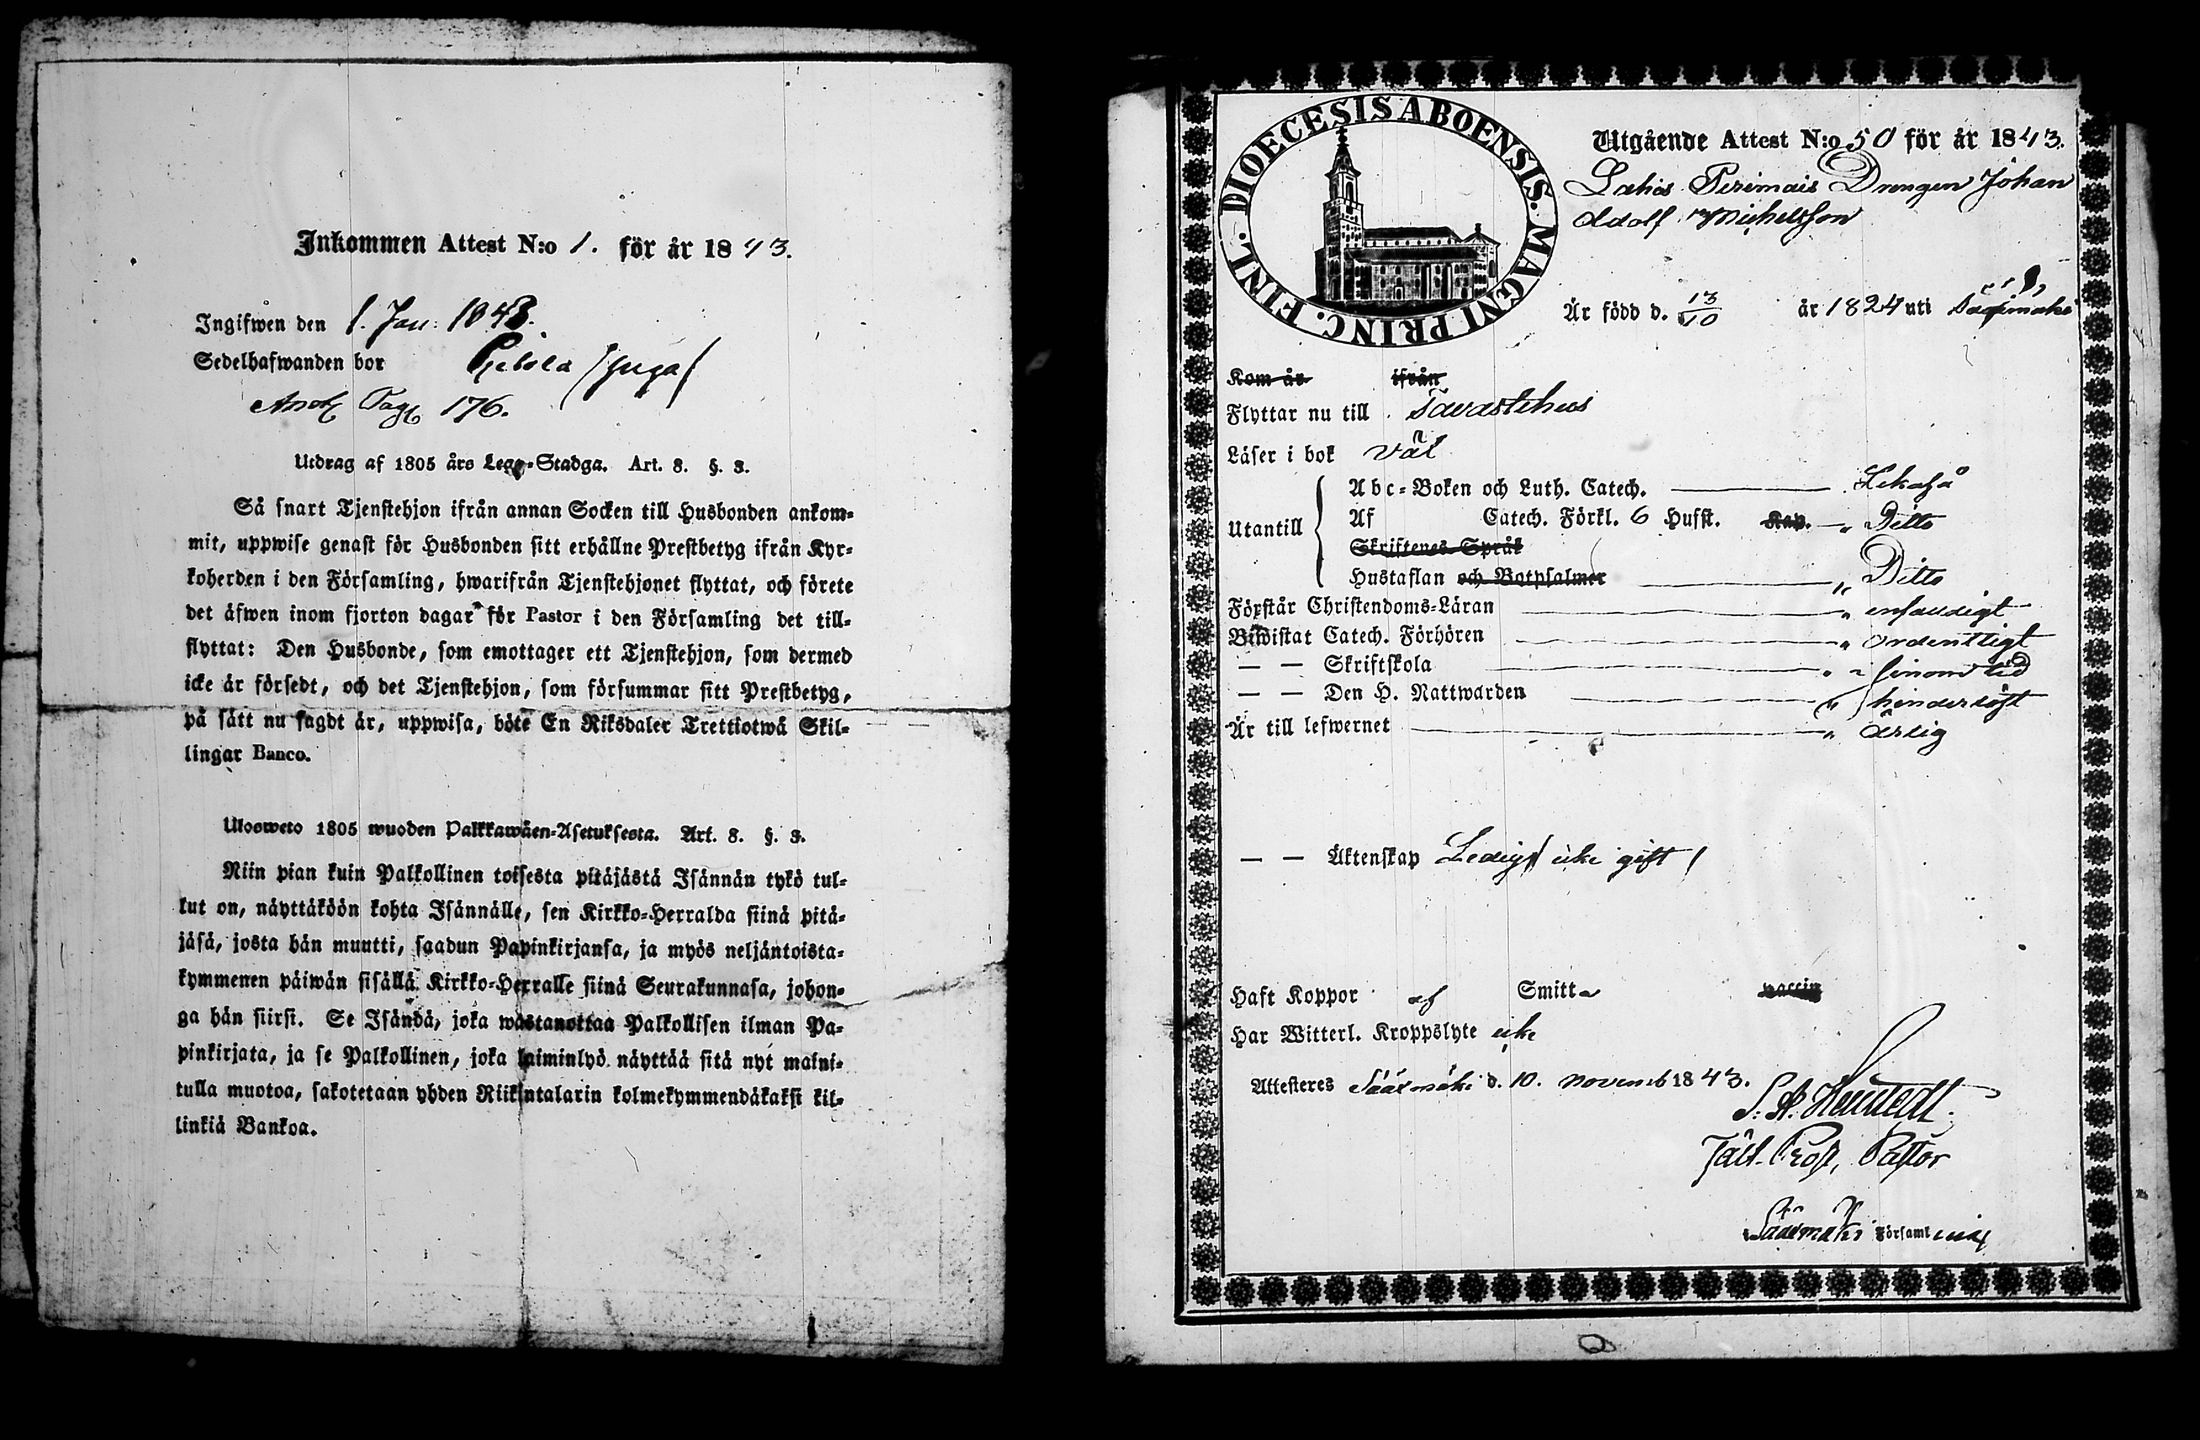 Inkommen Attest N:o 1. för år 1843.
Ingifwen den 1. Jan: 1843.
Sedelhafwanden bor
Pag 176.
Utdrag af 1805 års Lego-Stadga. Art. 8. §. 3.
Så snart Tjenstehjon ifrån annan Socken till Husbonden ankom-
mit, uppwise genast för Husbonden sitt erhållne Prestbetyg ifrån Kyr-
koherden i den Församling, hwarifrån Tjenstehjonet flyttat, och förete
det äfwen inom fjorton dagar för Pastor i den Församling det till-
flyttat: Den Husbonde, som emottager ett Tjenstehjon, som dermed
icke är försedt, och det Tjenstehjon, som försummar sitt Prestbetyg,
på sätt nu sagdt är, uppwisa, böte En Riksdaler Trettiotwå Skil-
lingar Banco.
Ulosweto 1805 wuoden Palkkawäen-Asetuksesta. Art. 8. §. 3.
Niin pian kuin Palkollinen toisesta pitäjästä Isännän tykö tul-
lut on, näyttäköön kohta Isännälle, sen Kirkko-Herralda siinä pitä-
jäsä, josta hän muutti, saadun Papinkirjansa, ja myös neljäntoista-
kymmenen päiwän sisällä Kirkko-Herralle siinä Seurakunnasa, johon-
ga hän siirsi. Se Isändä, joka wastanottaa Palkollisen ilman Pa-
pinkirjata, ja se Palkollinen, joka laiminlyö näyttää sitä nyt maini-
tulla muotoa, sakotetaan yhden Riikintalarin kolmekymmendäkaksi kil-
linkiä Bankoa.
DIOECESIS ABOENSIS. MAGNI PRINC. FINL.
Utgående Attest N:o 50 för år 1843.
Drengen Johan
Adolf Michelsson
Är född d. 13/10 år 1824 uti Sääxmäki
Kom år ifrån
Flyttar nu till Tavastehus
Läser i bok väl
Utantill
Abc-Boken och Luth. Catech. Likaså
Af Catech. Förkl. 6 Hufst. Kap. " Ditto
Skriftenes Språk
Hustaflan och Botpsalmer " Ditto
Förstår Christendoms-Läran " enfaldigt
Biwistat Catech. Förhören " ordentligt
— — Skriftskola " sinom tid
— — Den H. Nattwarden " hinderlöst
Är till lefwernet " ärlig
— — Äktenskap Ledig / icke gift /
Haft Koppor af Smitta vaccin
Har Witterl. Kroppslyte icke
Attesteres Sääxmäki d. 10. novemb 1843.
Prost, Pastor
Sääxmäki Församling